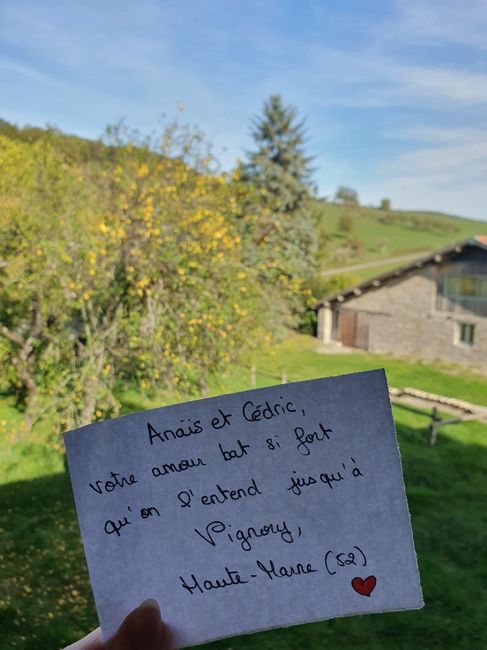 Anaïs et Cédric,
votre amour bat si fort
qu'on l'entend jusqu'à
Vignory,
Haute-Marne (52)